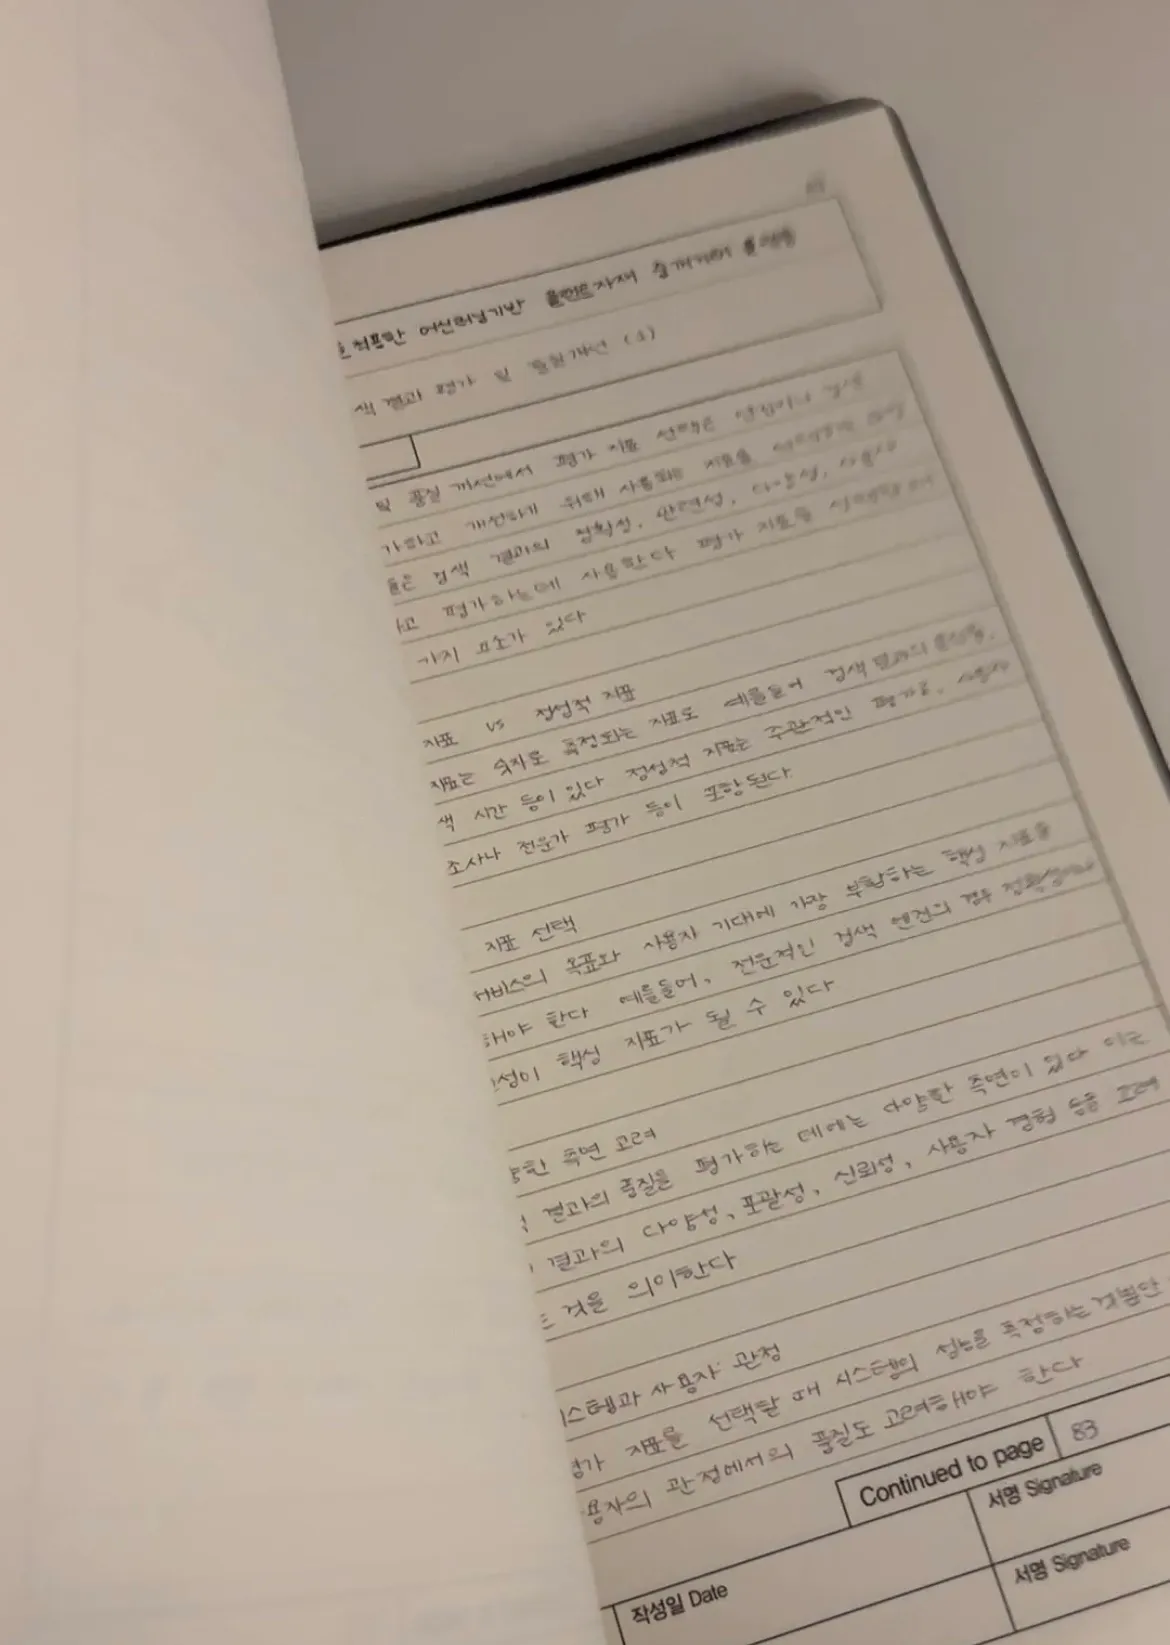 적표만 머신러닝기반 플랜트자재
색 결과 평가 및 품질개선 (1)
및 품질 개선에서 평가 지표 선택은
가하고 개선하기 위해 사용되는 지표를
들은 검색 결과의 정확성, 관련성, 다양성, 사용자
하고 평가하는데 사용한다 평가 지표를 선택할 때
가지 요소가 있다
지표 vs 정성적 지표
지표는 숫자로 측정되는 지표로 예를들어 검색 결과의
색 시간 등이 있다 정성적 지표는 주관적인 평가로, 사용자
조사나 전문가 평가 등이 포함된다
지표 선택
서비스의 목표와 사용자 기대에 가장 부합하는 핵심 지표를
해야 한다 예를들어, 전문적인 검색 엔진의 경우
성이 핵심 지표가 될 수 있다
양한 측면 고려
결과의 품질을 평가하는 데에는 다양한 측면이 있다 이는
결과의 다양성, 포괄성, 신뢰성, 사용자 경험 등을 고려
것을 의미한다
시스템과 사용자 관점
평가 지표를 선택할 때 시스템의 성능을 측정하는
사용자의 관점에서의 품질도 고려해야 한다
Continued to page 83
서명 Signature
작성일 Date
서명 Signature